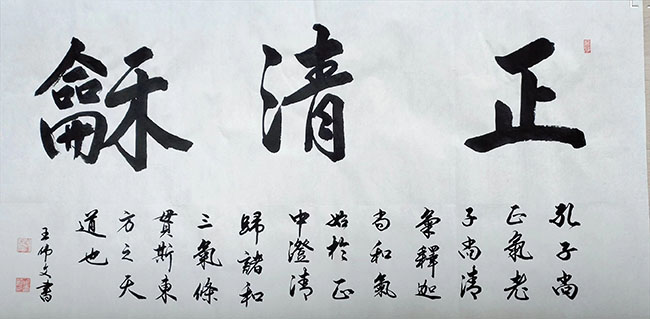 正清龢
孔子尚
正氣老
子尚清
氣釋迦
尚和氣
始於正
中澄清
歸諸和
三氣條
貫斯東
方之天
道也
王伟文書